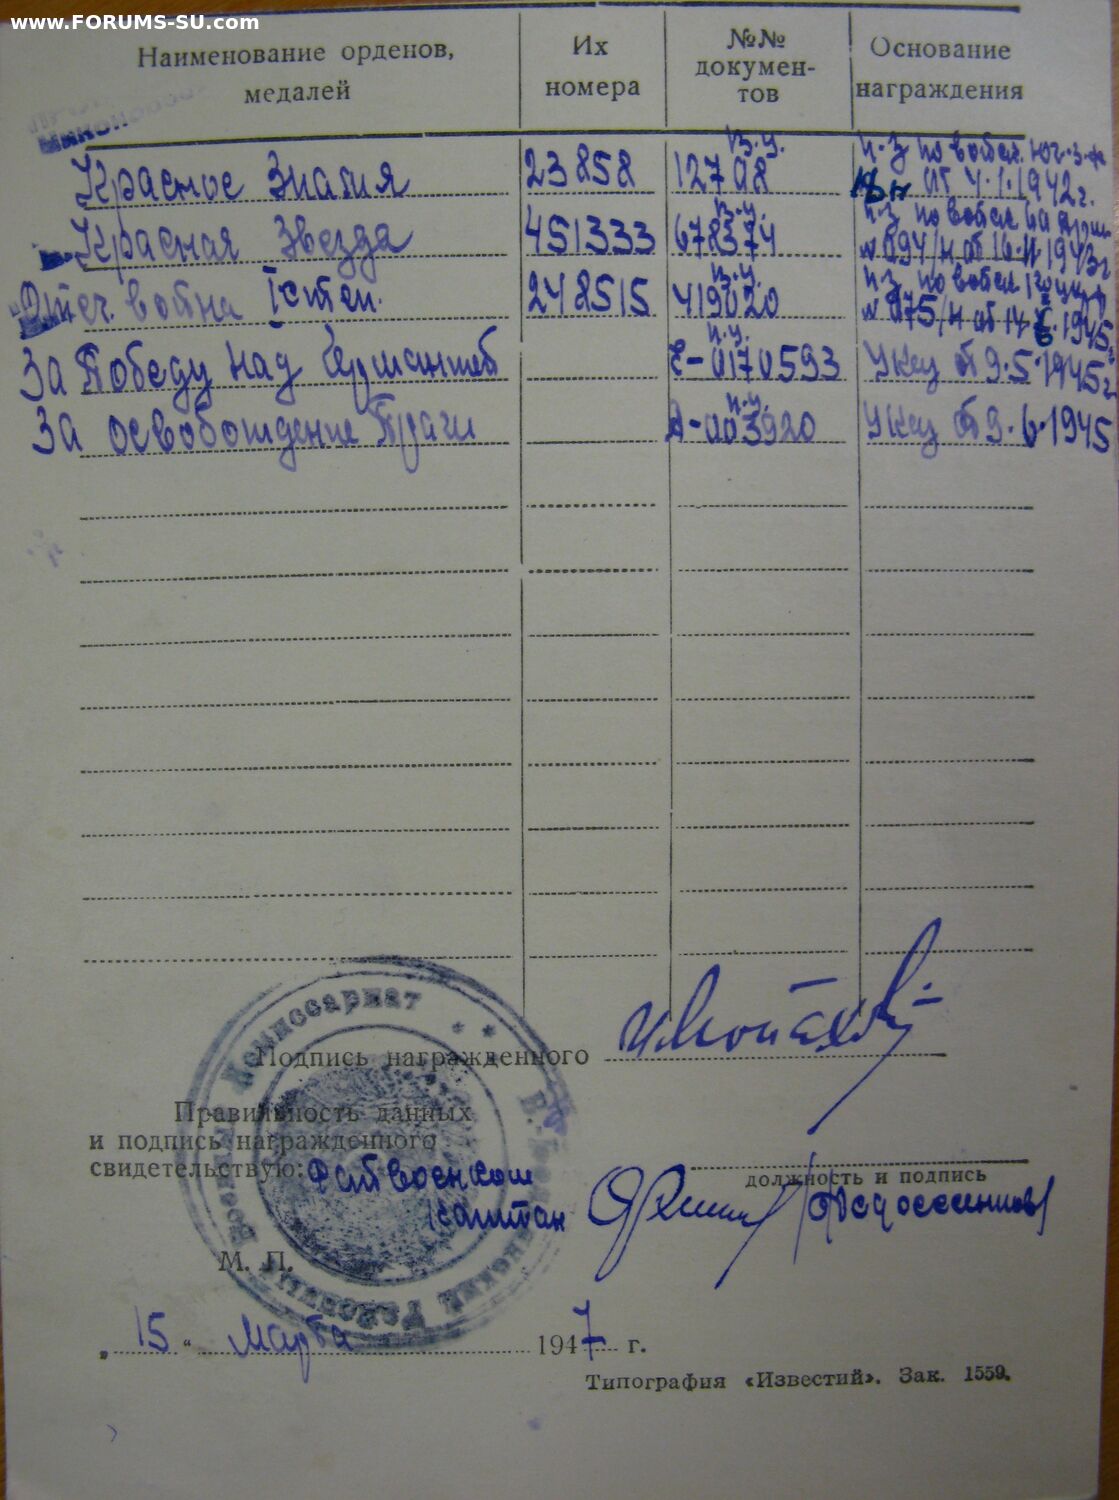 www.FORUMS-SU.com
Наименование орденов, медалей
Их номера
№№ документов
Основание награждения
Красное Знамя 23858 в.у. 12798 п-з по войск. Юг-З-ф
от 4.1.1942г.
Красная Звезда 451333 в.у. 678374 п-з по войск
№ 094/н от 16.11.1943г
Отеч. война I степ. 248515 в.у. 419020 п-з по войск
№ 075/н от 14 1945г
За Победу над Германией п.у. Е-0170593 Указ от 9.5.1945г
За освобождение Праги п.у. А-003920 Указ от 9.6.1945
Подпись награжденного
Правильность данных
и подпись награжденного
свидетельствую: Райвоенком
капитан
должность и подпись
/Федосеенков/
М. П.
Военный Комиссариат
Районный
„ 15 “ Марта 1947 г.
Типография «Известий». Зак. 1559.